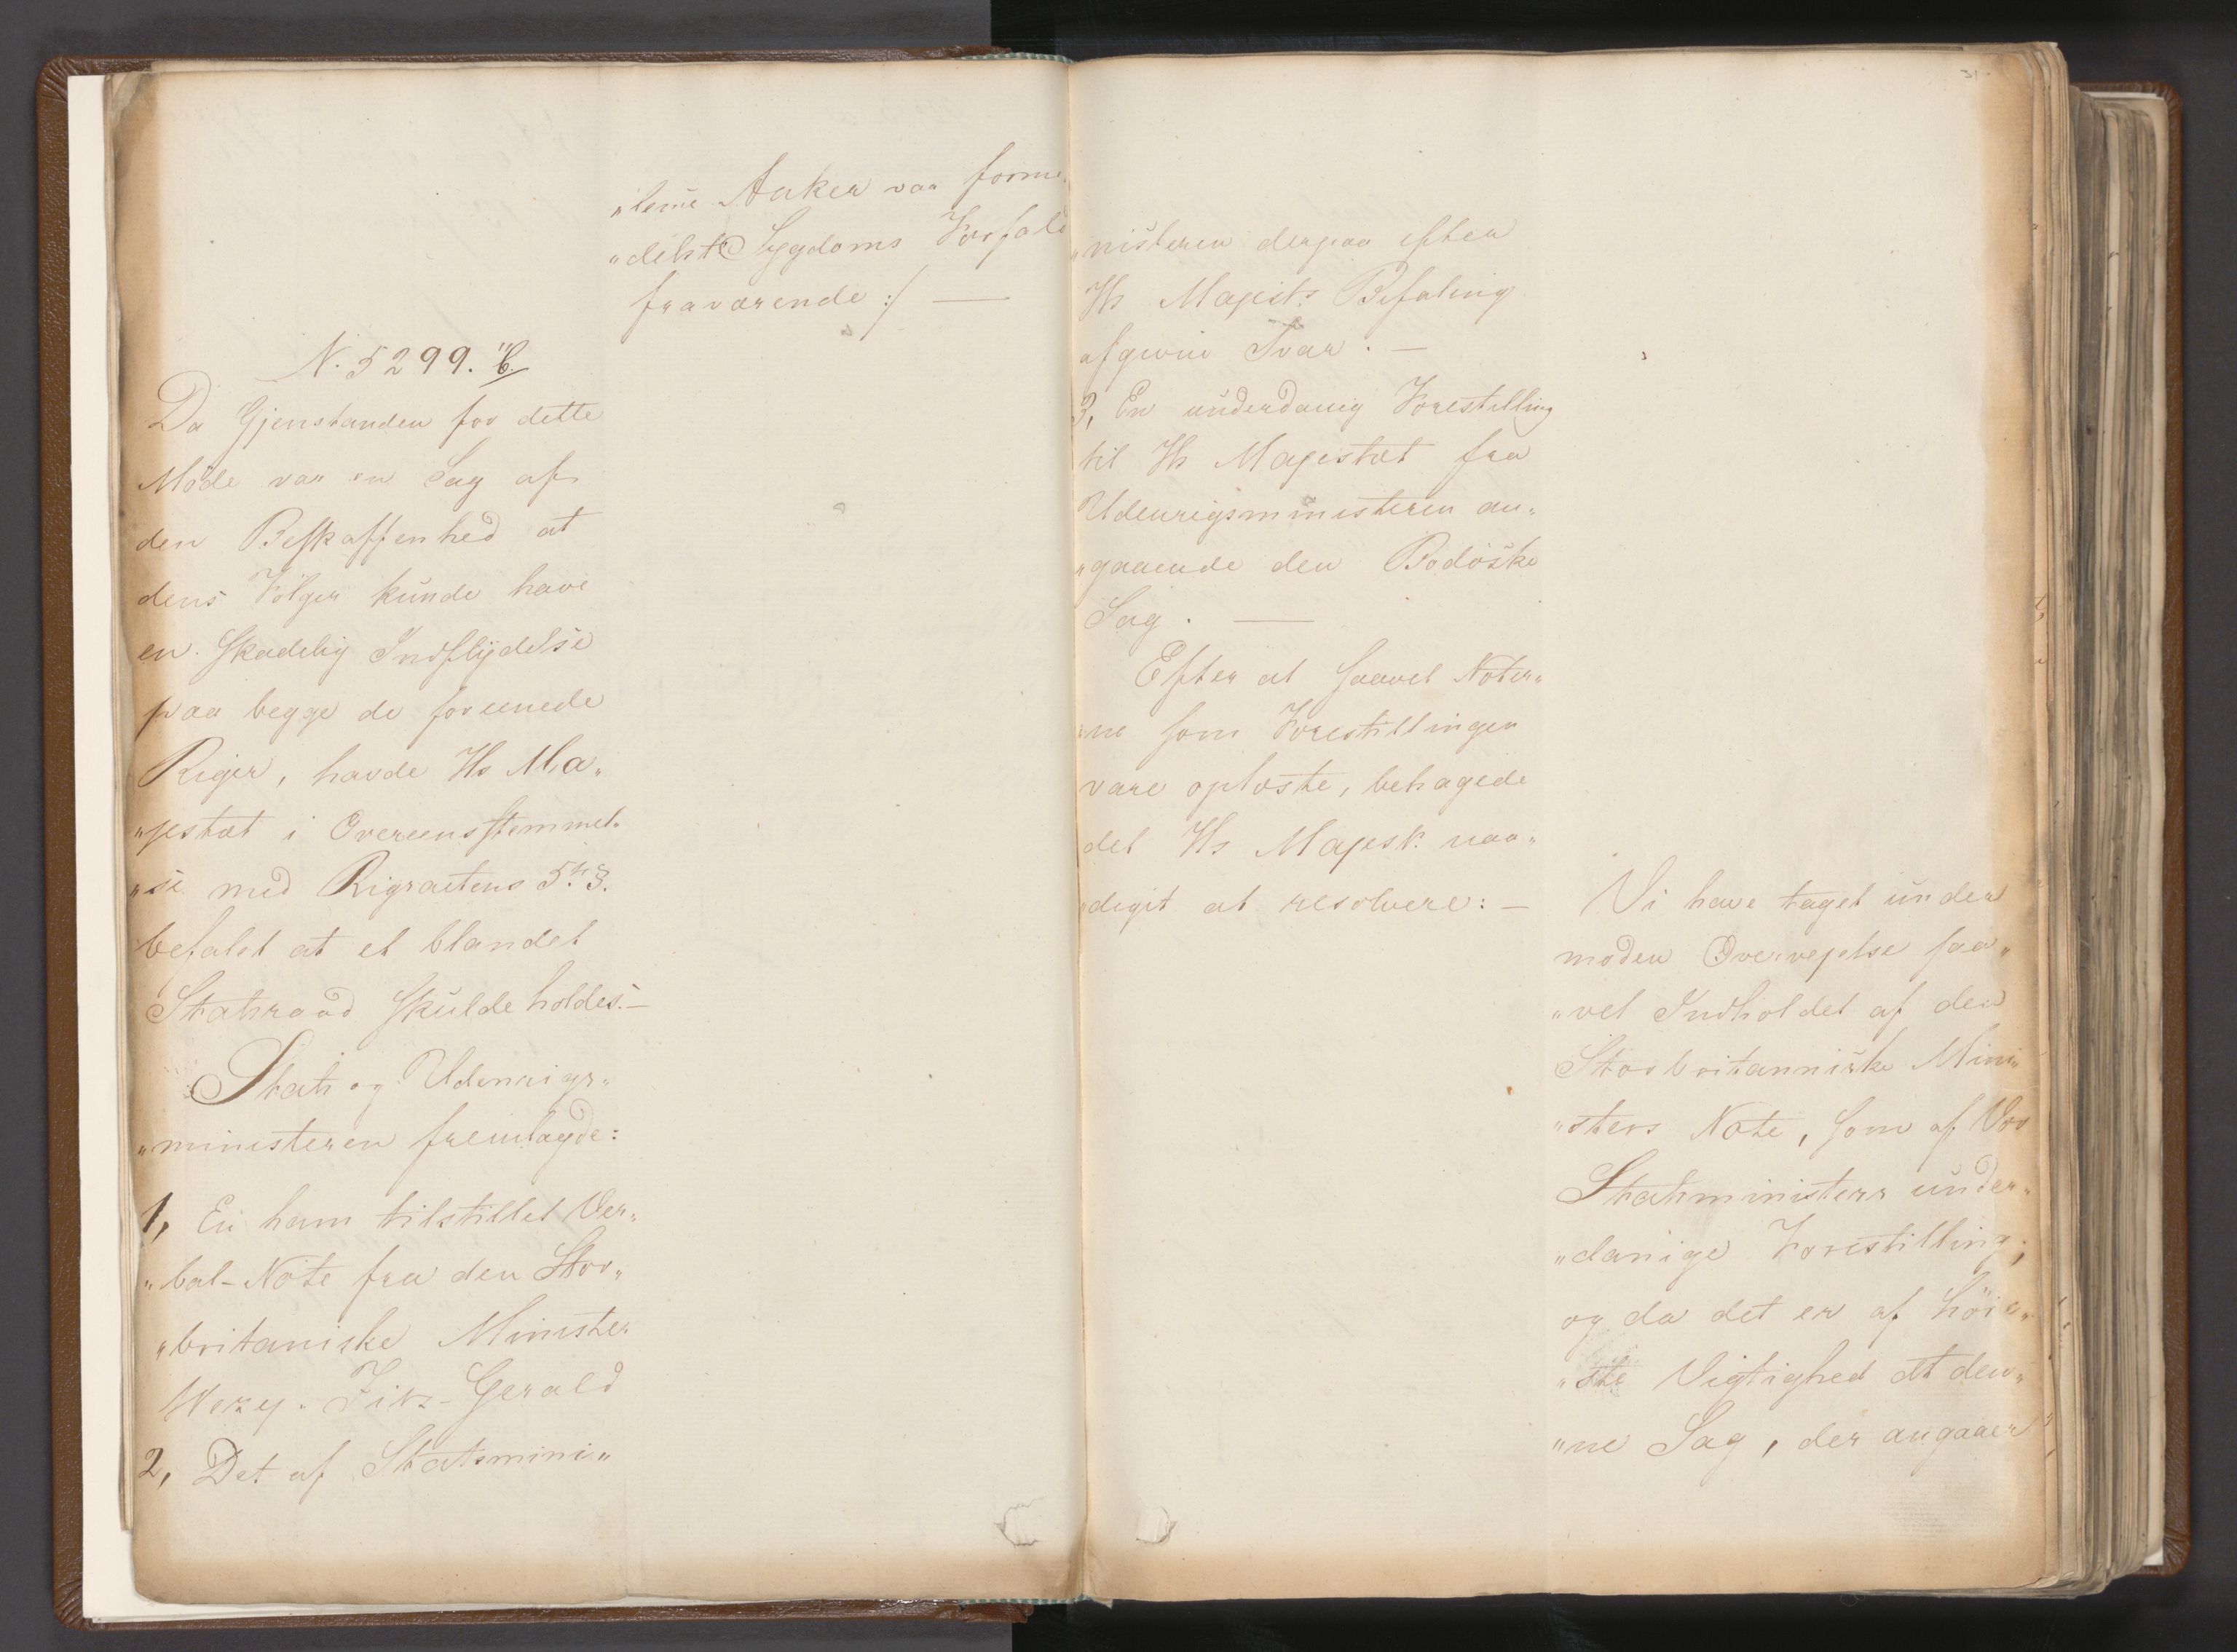 „lerne Anker var forme„
„delst Sygdoms Forfald
fraværende :/ —
N. 5299. "b.
Da Gjenstanden for dette
Møde var en Sag af
den Beskaffenhed at
dens Følger kunde have
en skadelig Indflydelse
paa begge de foreenede
Riger, havde Hs Ma„
„jestæt i Overeensstemmel„
„se med Rigsactens 5te §.
befalet at et blandet
Statsraad skulde holdes. —
Stats og Udenrigs„
„ministeren fremlagde:
1, En ham tilstillet Ver„
„bal-Note fra den Stor„
„britaniske Minister
Vesey. Fitz-Gerald
2, Det af Statsmini„
31
„nisteren derpaa efter
Hs Majests Befaling
afgivne Svar. —
3, En underdanig Forestilling
til Hs Majestæt fra
Udenrigsministeren an„
„gaaende den Bodöske
Sag. —
Efter at saavel Noter„
„ne som Forestillingen
vare oplæste, behagede
det Hs Majest. naa„
„digst at resolvere: —
Vi have taget under
moden Overvejelse saa„
„vel Indholdet af den
Storbritanniske Mini„
„sters Note, som af Vor
Statsministers under„
„danige Forestilling;
og da det er af höie„
„ste Vigtighed at den„
„ne Sag, der angaaer